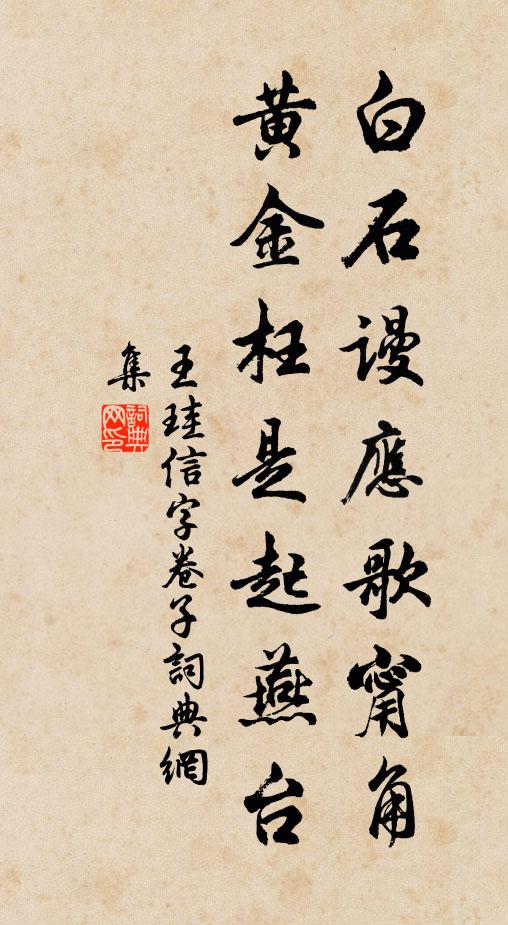 白石謾應歌甯角
黃金枉是起燕台
王珪信字卷子詞典網
集
詞典網印